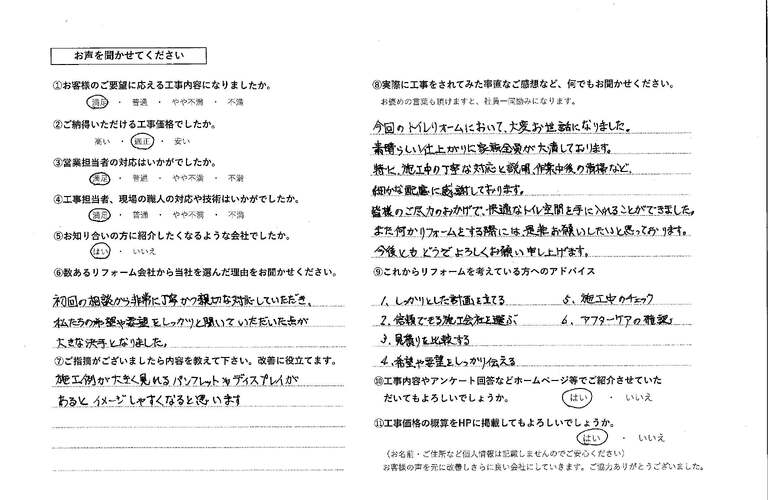 お声を聞かせてください
①お客様のご要望に応える工事内容になりましたか。
満足 ・ 普通 ・ やや不満 ・ 不満
②ご納得いただける工事価格でしたか。
高い ・ 適正 ・ 安い
③営業担当者の対応はいかがでしたか。
満足 ・ 普通 ・ やや不満 ・ 不満
④工事担当者、現場の職人の対応や技術はいかがでしたか。
満足 ・ 普通 ・ やや不満 ・ 不満
⑤お知り合いの方に紹介したくなるような会社でしたか。
はい ・ いいえ
⑥数あるリフォーム会社から当社を選んだ理由をお聞かせください。
初回の相談から非常に丁寧かつ親切な対応していただき、
私たちの希望や要望をしっかりと聞いていただいた点が
大きな決手となりました。
⑦ご指摘がございましたら内容を教えて下さい。改善に役立てます。
施工例が大きく見れるパンフレットやディスプレイが
あると イメージしやすくなると思います
⑧実際に工事をされてみた率直なご感想など、何でもお聞かせください。
お褒めの言葉も頂けますと、社員一同励みになります。
今回のトイレリォームにおいて、大変お世話になりました。
素晴らしい仕上がりに家族全員が大満しております。
特に、施工中の丁寧な対応と説明、作業中後の清掃など、
細かな配慮に感謝しております。
皆様のご尽力のおかげで、快適なトイレ空間を手に入れることができました。
また何かリフォームをする際には、是非お願いしたいと思っております。
今後とも どうぞよろしくお願い申し上げます。
⑨これからリフォームを考えている方へのアドバイス
1、しっかりとした計画を立てる 5、施工中のチェック
2、信頼できる施工会社を選ぶ 6、アフターケアの確認
3、見積りを比較する
4、希望や要望をしっかり伝える
⑩工事内容やアンケート回答などホームページ等でご紹介させていた
だいてもよろしいでしょうか。 はい ・ いいえ
⑪工事価格の概算をHPに掲載してもよろしいでしょうか。
はい ・ いいえ
（お名前・ご住所など個人情報は記載しませんのでご安心ください）
お客様の声を元に改善しさらに良い会社にしていきます。ご協力ありがとうございました。